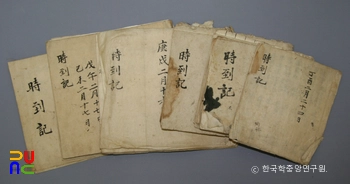 時到記
戊午二月十七日
乙未二月十七日
時到記
時到記
庚戌二月十六
時到記
時到記
時到記
八月二十四日
© 한국학중앙연구원